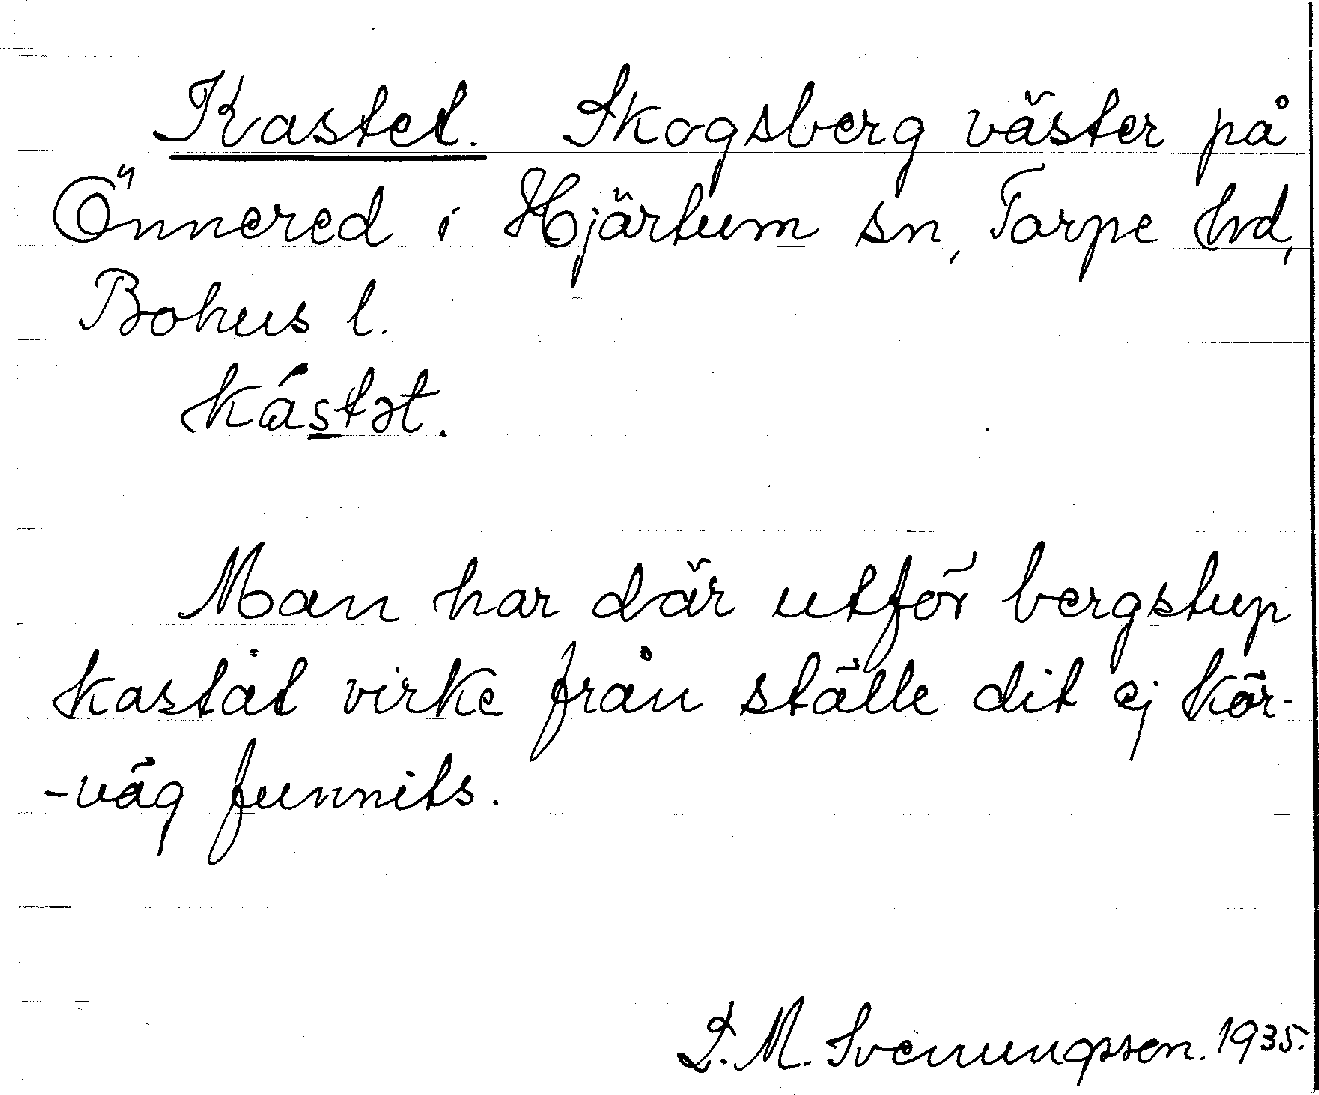 Kastet. Skogsberg väster på
Önnered i Hjärtum sn, Torpe hd,
Bohus l.
kástət.
Man har där utför bergstup
kastat virke från ställe dit ej kör-
-väg funnits.
D. M. Svenungsson. 1935.